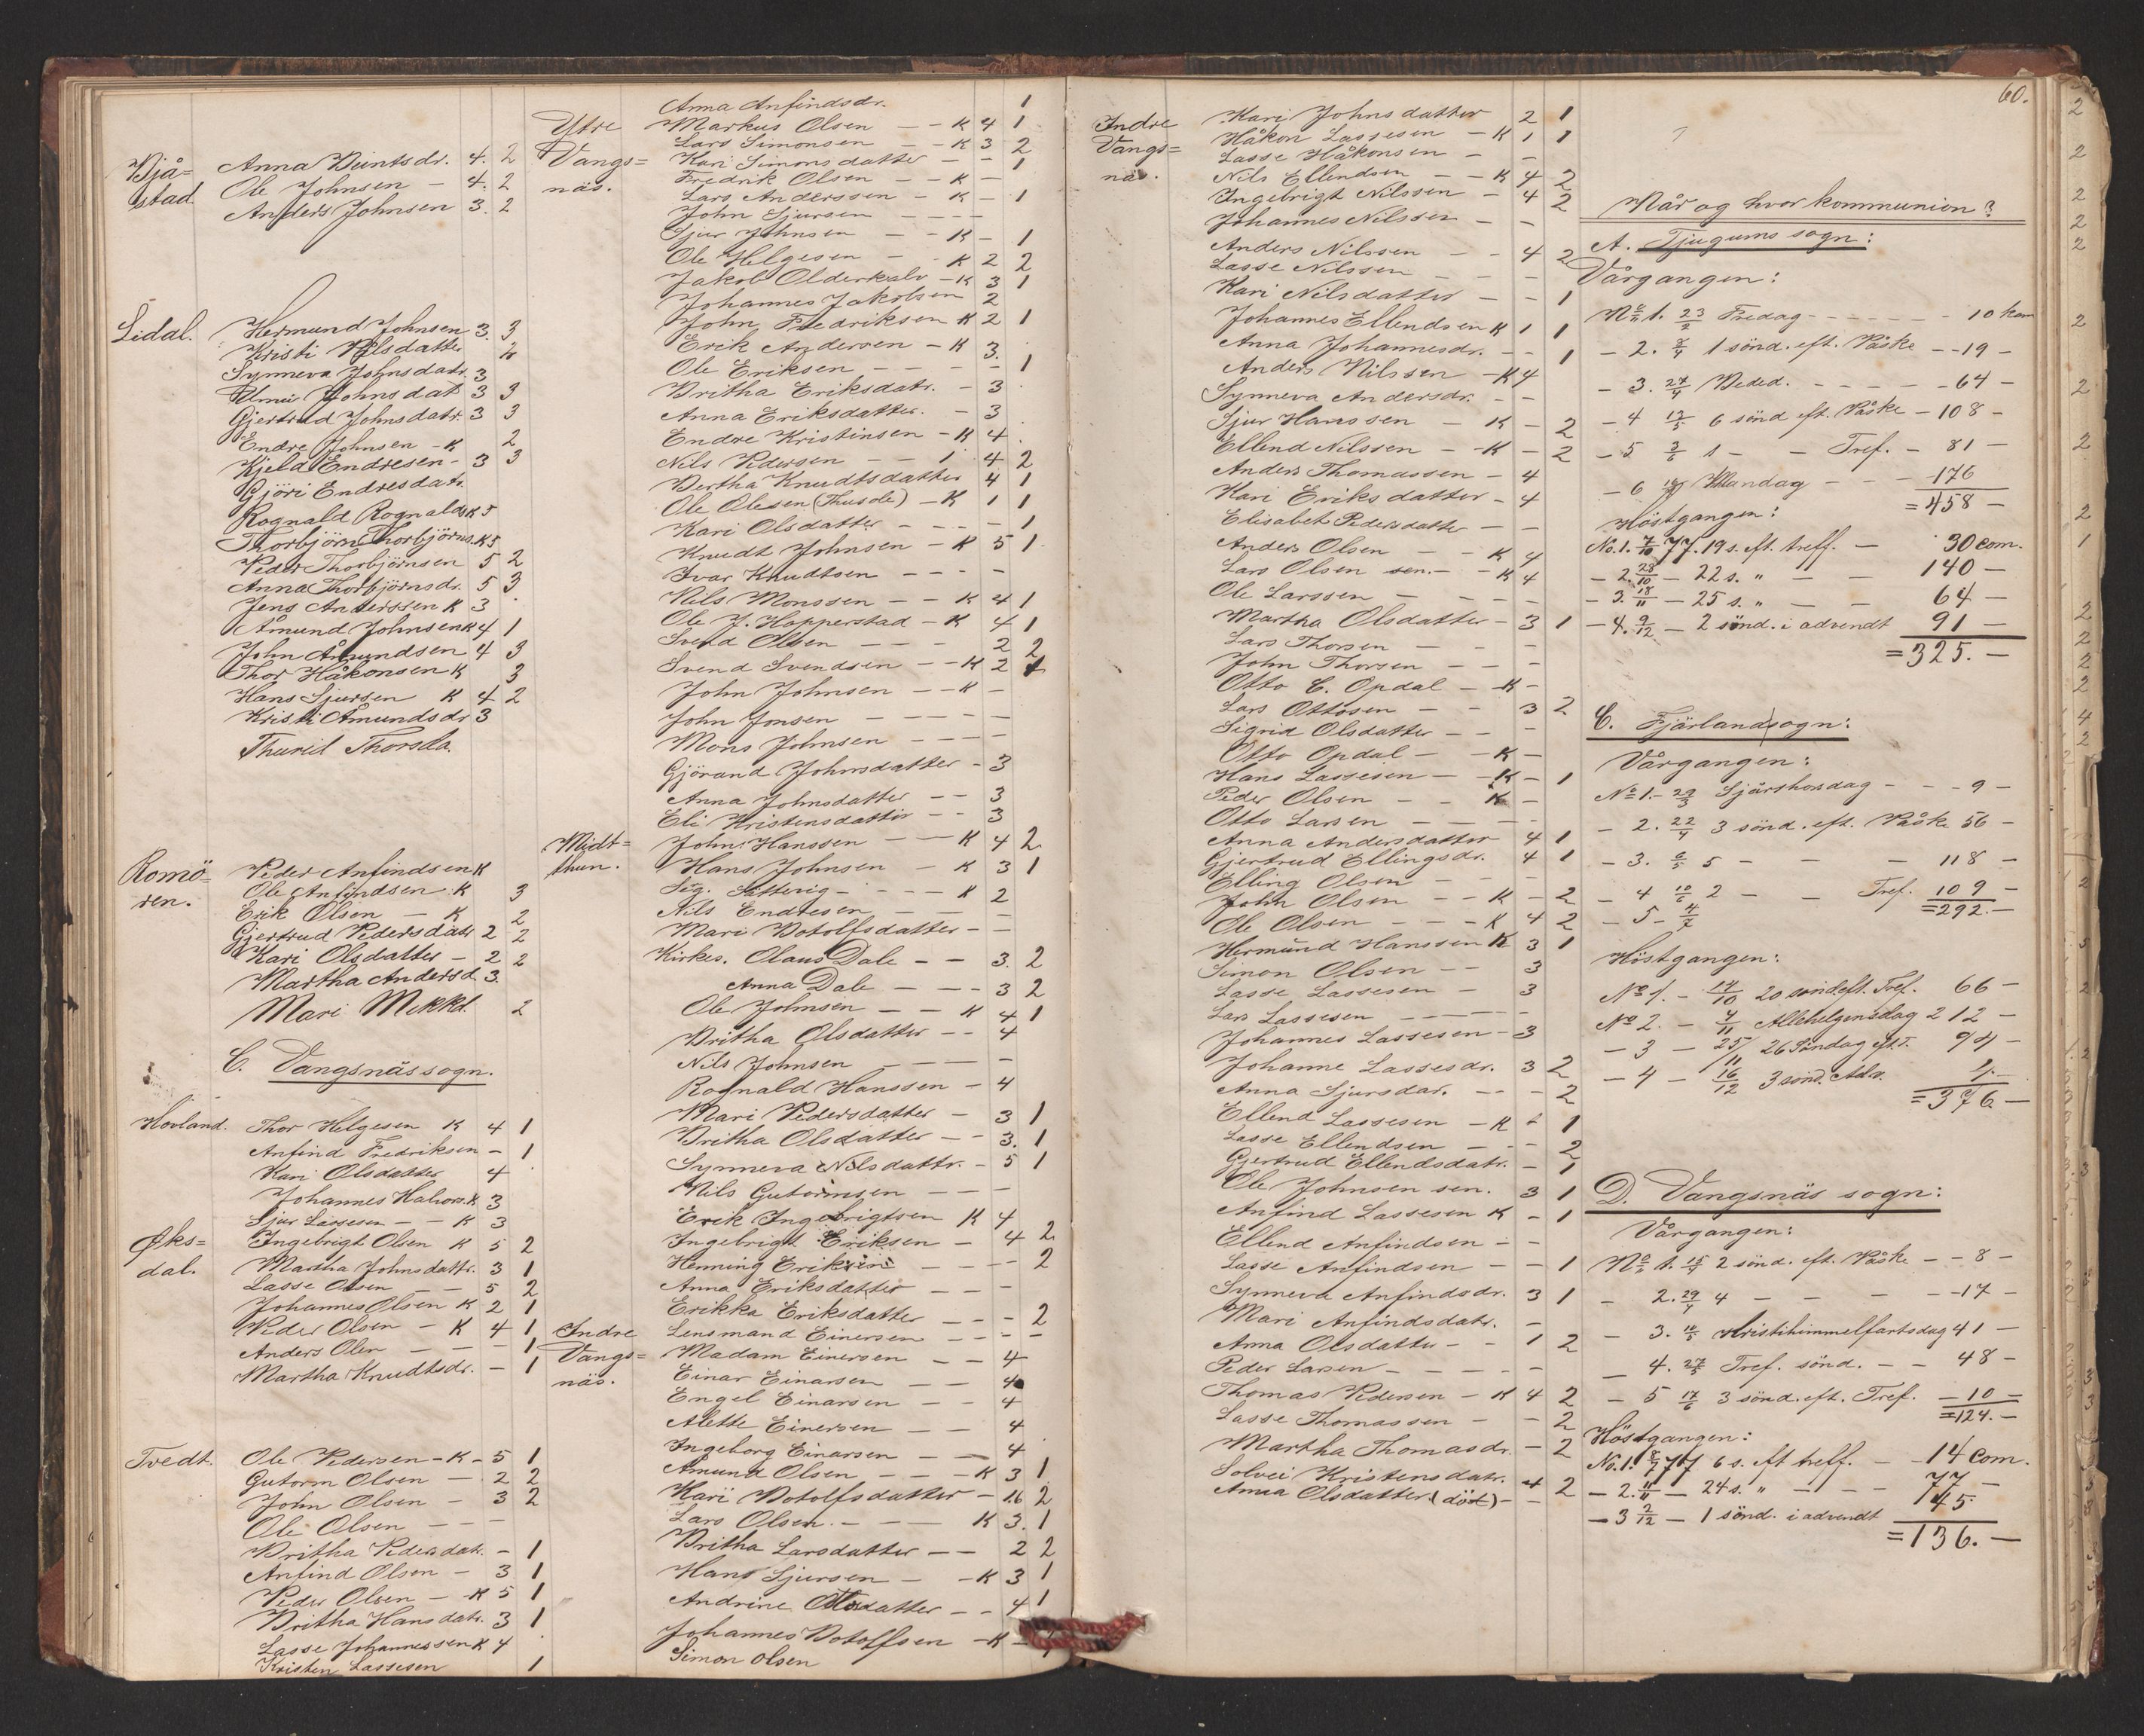 Bjå= Anna Bentsdr. 4. 2
stad. Ole Johnsen - 4. 2
Anders Johnsen 3. 2
Lidal. Hermund Johnsen 3. 3
Kristi Nilsdatter 2
Synneva Johnsdatr. 3
Johnsdat 3 3
Gjertrud Johnsdatr. 3 3
Endre Johnsen - K 2
Kjeld Endresen - 3 3
Gjöri Endresdatr.
Rognald Rognalds. K 5
Thorbjörn Thorbjörns. K 5
Peder Thorbjörnsen 5 2
Anna Thorbjörnsdr. 5 3
Jens Anderssen K 3
Åmund Johnsen K 4 1
John Åmundsen 4 3
Thor Håkonsen K 3
Hans Sjursen K 4 2
Kristi Åmundsdr 3
Thurid Thorsda.
Romö= Peder Anfindsen K
ren. Ole Anfindsen K 3
Erik Olsen - K 2
Gjertrud Pedersdatr 2 2
Kari Olsdatter - 2 2
Martha Andersd. 3.
Mari Mikkd. 2
C. Vangsnäs sogn.
Hovland. Thor Helgesen K 4 1
Anfind Fredriksen - 1
Kari Olsdatter 4
Johannes Halvors. K 3
Sjur Lassesen - - K 3
Øks= Ingebrigt Olsen K 5 2
dal. Martha Johnsdattr. 3 1
Lasse Olsen - - 5 2
Johannes Olsen K 2 1
Peder Olsen - K 4 1
Anders Olsen - - - 1
Martha Knudtsdr. - 1
Tvedt. Ole Pedersen - K - 5 1
Gutorm Olsen - 2 2
John Olsen - 3 2
Ole Olsen - - -
Britha Pedersdatr. - 1
Anfind Olsen - 3 1
Peder Olsen - K 5 1
Britha Hansdatr. 3 1
Lasse Johannessen K 4
Kristen Lassesen 1
Anna Anfindsdr. 1
Ytre Markus Olsen - - K 4 1
Vangs= Lars Simonsen - - K 3 2
näs. Kari Simonsdatter - - 1
Fredrik Olsen - - K -
Lars Anderssen - K - 1
John Sjursen - - - -
Sjur Johnsen - - K - 1
Ole Helgesen - - K 2 2
Jakob Olderkalv - K 3 1
Johannes Jakobsen 2
John Fredriksen K 2 1
Erik Andersen - K 3.
Ole Eriksen - - - - 1
Britha Eriksdatr. - 3
Anna Eriksdatter. - 3
Endre Kristinsen - K 4
Nils Pedersen - - 4 2
Bertha Knudtsdatter 4 1
Ole Olesen (Husde) - K 1 1
Kari Olsdatter - - - - 1
Knudt Johnsen - K 5 1
Ivar Knudtsen - - - -
Nils Monssen - - K 4 1
Ole J. Hopperstad - K 4 1
Svend Olsen - - - 2 2
Svend Svendsen - - K 2 1
John Johnsen - - K -
John Jonsen - - - -
Mons Johnsen - - - -
Gjörand Johnsdatter - 3
Anna Johnsdatter - - 3
Eli Kristensdatter - - 3
Midt= John Hanssen - - K 4 2
thun. Hans Johnsen - K 3 1
Sig. - - - K 2
Nils Endresen - - -
Mari Botolfsdatter - -
Kirkes. Olaus Dale - - 3. 2
Anna Dale - - - 3 2
Ole Johnsen - - K 4 1
Britha Olsdatter - - 4
Nils Johnsen - - - -
Rognald Hanssen - 4
Mari Pedersdatter - 3 1
Britha Olsdatter - - 3. 1
Synneva Nilsdattr. - 5 1
Nils Gutormsen - - -
Erik Ingebrigtsen K 4
Ingebrigt Eriksen - 4 2
Henning Eriksen - - - - 2
Anna Eriksdatter - - -
Erikka Eriksdatter - - - 2
Indre Lensmand Einersen - - - -
Vangs= Madam Einersen - - 4
näs. Einar Einarsen - - 4
Engel Einarsen - - 4
Alette Einersen - - 4
Ingeborg Einarsen - - 4
Åmund Olsen - - - K 3 1
Kari Botolfsdatter - 2
Lars Olsen. - - - K 3. 1
Britha Larsdatter - - 2 2
Hans Sjursen - - K 3 1
Andrine - - 4 1
Johannes Botolfsen - K -
Simon Olsen
60.
Indre Kari Johnsdatter 2 1
Vangs= Håkon Lassesen - K 1 1
näs. Lasse Håkonsen - -
Nils Ellendsen - - K 4 2
Ingebrigt Nilssen - 4 2
Johannes Nilssen - -
Anders Nilssen - - 4 2
Lasse Nilssen - - -
Kari Nilsdatter - - 1
Johannes Ellendsen K 1 1
Anna Johannesdr. - - 1
Anders Nilssen - K 4
Synneva Andersdr. - -
Sjur Hanssen - K - 2
Ellend Nilssen - - K - 2
Anders Thomassen - 4
Kari Eriksdatter - 4
Elisabet Pedersdatter - -
Anders Olsen - - K 4
Lars Olsen sen. - - K 4
Ole Larssen - - - -
Martha Olsdatter - 3 1
Lars Thorsen - - -
John Thorsen - - -
Otto E. Opdal - K -
Lars Ottosen - - 3 2
Sigrid Olsdatter - - -
Otto Opdal - - K -
Hans Lassesen - - K - 1
Peder Olsen - - K -
Otto Larsen - - - -
Anna Andersdatter 4 1
Gjertrud Ellingsdr. 4 1
Elling Olsen - - -
John Olsen - - K - 2
Ole Olsen - - - K 4 2
Hermund Hanssen K 3 1
Simon Olsen - - 3
Lasse Lassesen - 3
Lars Lassesen - - - -
Johannes Lassesen - 3
Johanne Lassesdr. 3 2
Anna Sjursdar. - - - 2
Ellend Lassesen - K - 1
Lasse Ellendsen - - - 2
Gjertrud Ellendsdatr. - 1
Ole Johnsen sen. 3 1
Anfind Lassesen K - 1
Ellend Anfindsen - -
Lasse Anfindsen - - 1
Synneva Anfindsdr. 3 1
Mari Anfindsdatr. -
Anna Olsdatter - - 1 2
Peder Larsen - - - -
Thomas Pedersen - K 4 2
Lasse Thomassen - - 2
Martha Thomasdr. - 2
Solvei Kristensdatr. 4 2
Anna Olsdatter (död) - -
Når og hvor kommunion?
A. Tjugums sogn:
Vårgangen:
No 1. 23/2 Fredag - - - - - - 10 kom
- 2. 8/4 1 sönd. eft. Påske - - 19 -
- 3. 27/4 Beded. - - - - - 64 -
- 4 13/5 6 sönd eft. Påske - 108 -
- 5 3/6 1 - - Tref. - 81 -
- 6 Mandag - - - 176
= 458 -
Höstgangen:
No. 1. 7/10 77. 19 s. eft. treff. - 30 com.
- 2. 28/10 - 22 s. " - - 140 -
- 3. 18/11 - 25 s. " - - 64 -
- 4. 9/12 - 2 sönd. i advendt 91 -
= 325. -
C. Fjärlandsogn:
Vårgangen:
No 1. - 29/3 Sjärshorsdag - - - 9 -
- 2. 22/4 3 sönd. eft. Påske 56 -
- 3. 6/5 5 - - - 118 -
- 4 10/6 2 - - Tref. 109 -
= 292. -
- 5 - 4/7
Höstgangen:
No 1. - 14/10 20 sönd. eft. Tref. 66 -
No 2. - 4/11 Allehelgensdag 212 -
- 3 - 25/11 26 Söndag eft. T. 94 -
- 4 - 16/12 3 sönd. Adv. 4. -
= 376. -
D. Vangsnäs sogn:
Vårgangen:
No 1. 15/4 2 sönd. eft. Påske - - 8 -
- 2. 29/4 4 - - - - - 17 -
- 3. 10/5 Kristihimmelfartsdag 41 -
- 4. 27/5 Tref. sönd. - - 48 -
- 5 17/6 3 sönd. eft. Tref. - 10 -
= 124. -
Höstgangen:
No. 1. 8/7 77 6 s. eft treff. - - 14 com.
- 2. 11/11 - 24 s. " - - - 77 -
- 3 2/12 - 1 sönd. i advendt 45.
= 136. -